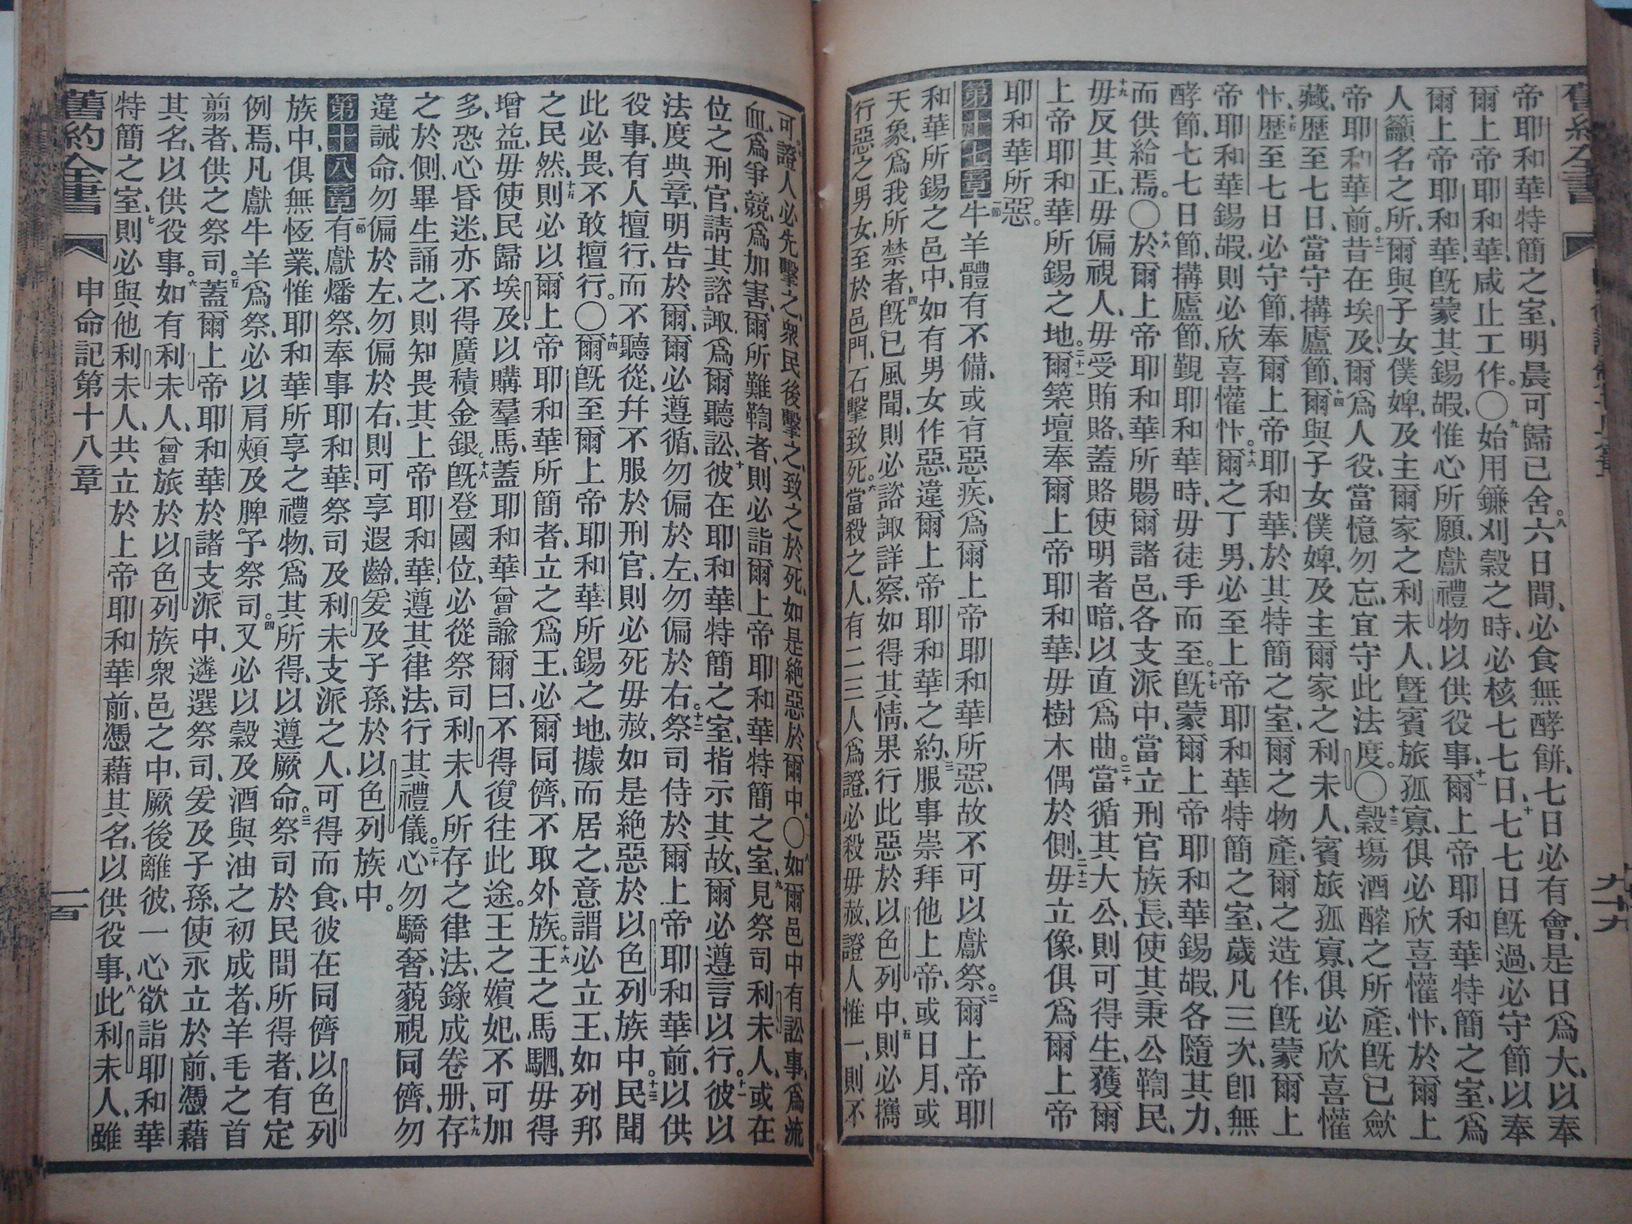 帝耶和華特簡之室、明晨可歸已舍。八六日間、必食無酵餅、七日必有會、是日爲大、以奉
爾上帝耶和華、咸止工作。〇九始用鐮刈穀之時、必核七七日、十七七日旣過、必守節以奉
爾上帝耶和華、旣蒙其錫嘏、惟心所願、獻禮物以供役事、十一爾上帝耶和華特簡之室、爲
人籲名之所、爾與子女僕婢、及主爾家之利未人、曁賓旅孤寡、俱必欣喜懽忭、於爾上
帝耶和華前。十二昔在埃及、爾爲人役、當憶勿忘、宜守此法度。〇十三穀塲酒醡之所產、旣已歛
藏、歷至七日、當守搆廬節、十四爾與子女僕婢、及主爾家之利未人、賓旅孤寡、俱必欣喜懽
忭、十五歷至七日、必守節、奉爾上帝耶和華、於其特簡之室、爾之物產、爾之造作、旣蒙爾上
帝耶和華錫嘏、則必欣喜懽忭。十六爾之丁男、必至上帝耶和華特簡之室、歲凡三次、卽無
酵節、七七日節、搆廬節、覲耶和華時、毋徒手而至。十七旣蒙爾上帝耶和華錫嘏、各隨其力、
而供給焉。〇十八於爾上帝耶和華所賜爾諸邑、各支派中、當立刑官族長、使其秉公鞫民、
十九毋反其正、毋偏視人、毋受賄賂、蓋賂使明者暗、以直爲曲。二十當循其大公、則可得生、獲爾
上帝耶和華所錫之地。二十一爾築壇奉爾上帝耶和華、毋樹木偶於側、二十二毋立像、俱爲爾上帝
耶和華所惡。
第十七章 一節牛羊體有不備、或有惡疾、爲爾上帝耶和華所惡、故不可以獻祭。二爾上帝耶
和華所錫之邑中、如有男女作惡、違爾上帝耶和華之約、三服事崇拜他上帝、或日月、或
天象、爲我所禁者、四旣已風聞、則必諮諏詳察、如得其情、果行此惡於以色列中、五則必攜
行惡之男女、至於邑門、石擊致死。六當殺之人、有二三人爲證必殺毋赦、證人惟一、則不
可。七證人必先擊之、衆民後擊之、致之於死、如是絶惡於爾中。〇八如爾邑中有訟事、爲流
血、爲爭競、爲加害、爾所難鞫者、則必詣爾上帝耶和華特簡之室、九見祭司利未人、或在
位之刑官、請其諮諏、爲爾聽訟、十彼在耶和華特簡之室、指示其故、爾必遵言以行。十一彼以
法度典章、明告於爾、爾必遵循、勿偏於左、勿偏於右。十二祭司侍於爾上帝耶和華前、以供
役事、有人擅行、而不聽從、幷不服於刑官、則必死毋赦、如是絶惡於以色列族中。十三民聞
此必畏、不敢擅行。〇十四爾旣至爾上帝耶和華所錫之地、據而居之、意謂必立王、如列邦
之民然、十五則必以爾上帝耶和華所簡者、立之爲王、必爾同儕、不取外族。十六王之馬駟、毋得
增益、毋使民歸埃及、以購羣馬、蓋耶和華曾諭爾曰、不得復往此途。十七王之嬪妃、不可加
多、恐心昏迷、亦不得廣積金銀。十八旣登國位、必從祭司利未人所存之律法、錄成卷册、十九存
之於側、畢生誦之、則知畏其上帝耶和華、遵其律法、行其禮儀、二十心勿驕奢、藐視同儕、勿
違誡命、勿偏於左、勿偏於右、則可享遐齡、爰及子孫、於以色列族中。
第十八章 一節有獻燔祭、奉事耶和華、祭司及利未支派之人、可得而食、彼在同儕以色列
族中、俱無恆業、惟耶和華所享之禮物、爲其所得、以遵厥命。三祭司於民間所得者、有定
例焉、凡獻牛羊爲祭、必以肩頰及脾、予祭司。四又必以穀及酒與油之初成者、羊毛之首
翦者、供之祭司。五蓋爾上帝耶和華於諸支派中、遴選祭司、爰及子孫、使永立於前、憑藉
其名、以供役事。六如有利未人、曾旅於以色列族衆邑之中、厥後離彼、一心欲詣耶和華
特簡之室、七則必與他利未人、共立於上帝耶和華前、憑藉其名、以供役事、八此利未人、雖
舊約全書
申命記第十八章
一百
九十九